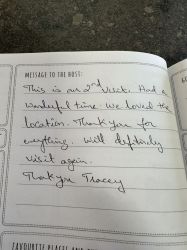 MESSAGE TO THE HOST:
This is our 2nd visit. Had a
wonderful time. We loved the
location. Thank you for
everything. Will definitely
visit again.
Thank you Tracey
FAVOURITE PLACES AND